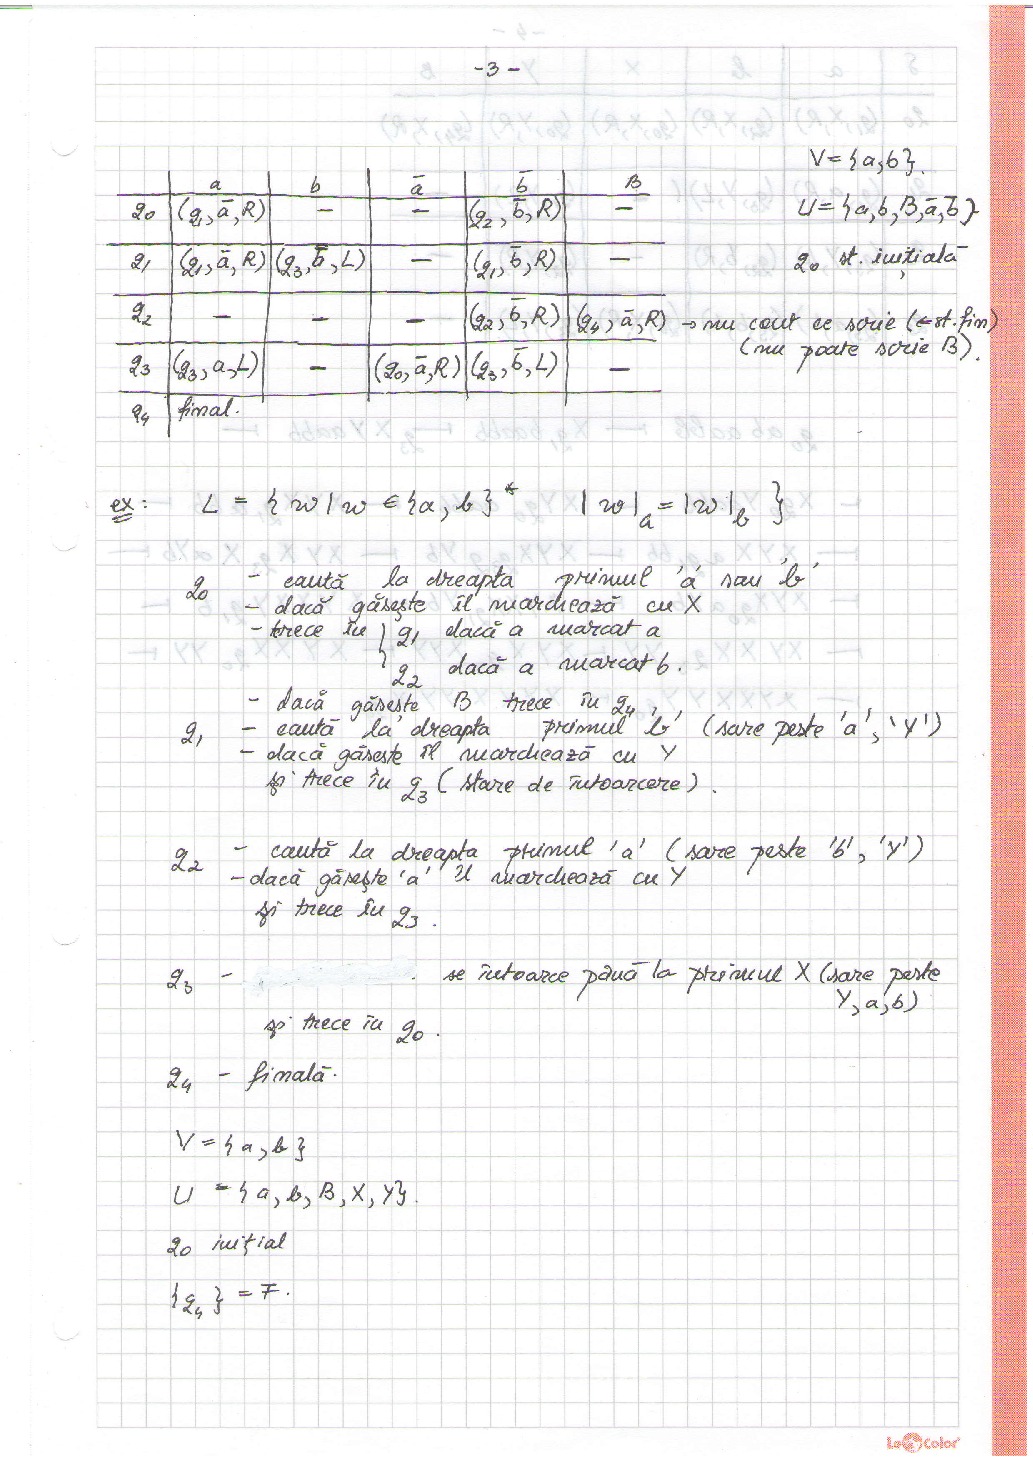 -3-
V = {a,b}.
a b ā b̄ B
q0 (q1, ā, R) — — (q2, b̄, R) —
U = {a,b,B,ā,b̄}
q1 (q1, ā, R) (q3, b̄, L) — (q1, b̄, R) —
q0 st. inițială
q2 — — — (q2, b̄, R) (q4, ā, R) → nu cont ce scrie (← st. fin)
(nu poate scrie B).
q3 (q3, a, L) — (q0, ā, R) (q3, b̄, L) —
q4 final.
ex: L = { w | w ∈ {a, b}* |w|a = |w|b }
q0 - caută la dreapta primul 'a' sau 'b'
- dacă găsește îl marchează cu X
- trece în } q1 dacă a marcat a
q2 dacă a marcat b.
- dacă găsește B trece în q4.
q1 - caută la dreapta primul 'b' (sare peste 'a', 'Y')
- dacă găsește îl marchează cu Y
și trece în q3 (stare de întoarcere).
q2 - caută la dreapta primul 'a' (sare peste 'b', 'Y')
- dacă găsește 'a' îl marchează cu Y
și trece în q3.
q3 - se întoarce până la primul X (sare peste
Y, a, b)
și trece în q0.
q4 - finală.
V = {a, b}
U = {a, b, B, X, Y}.
q0 inițial
{q4} = F.
LogiColor